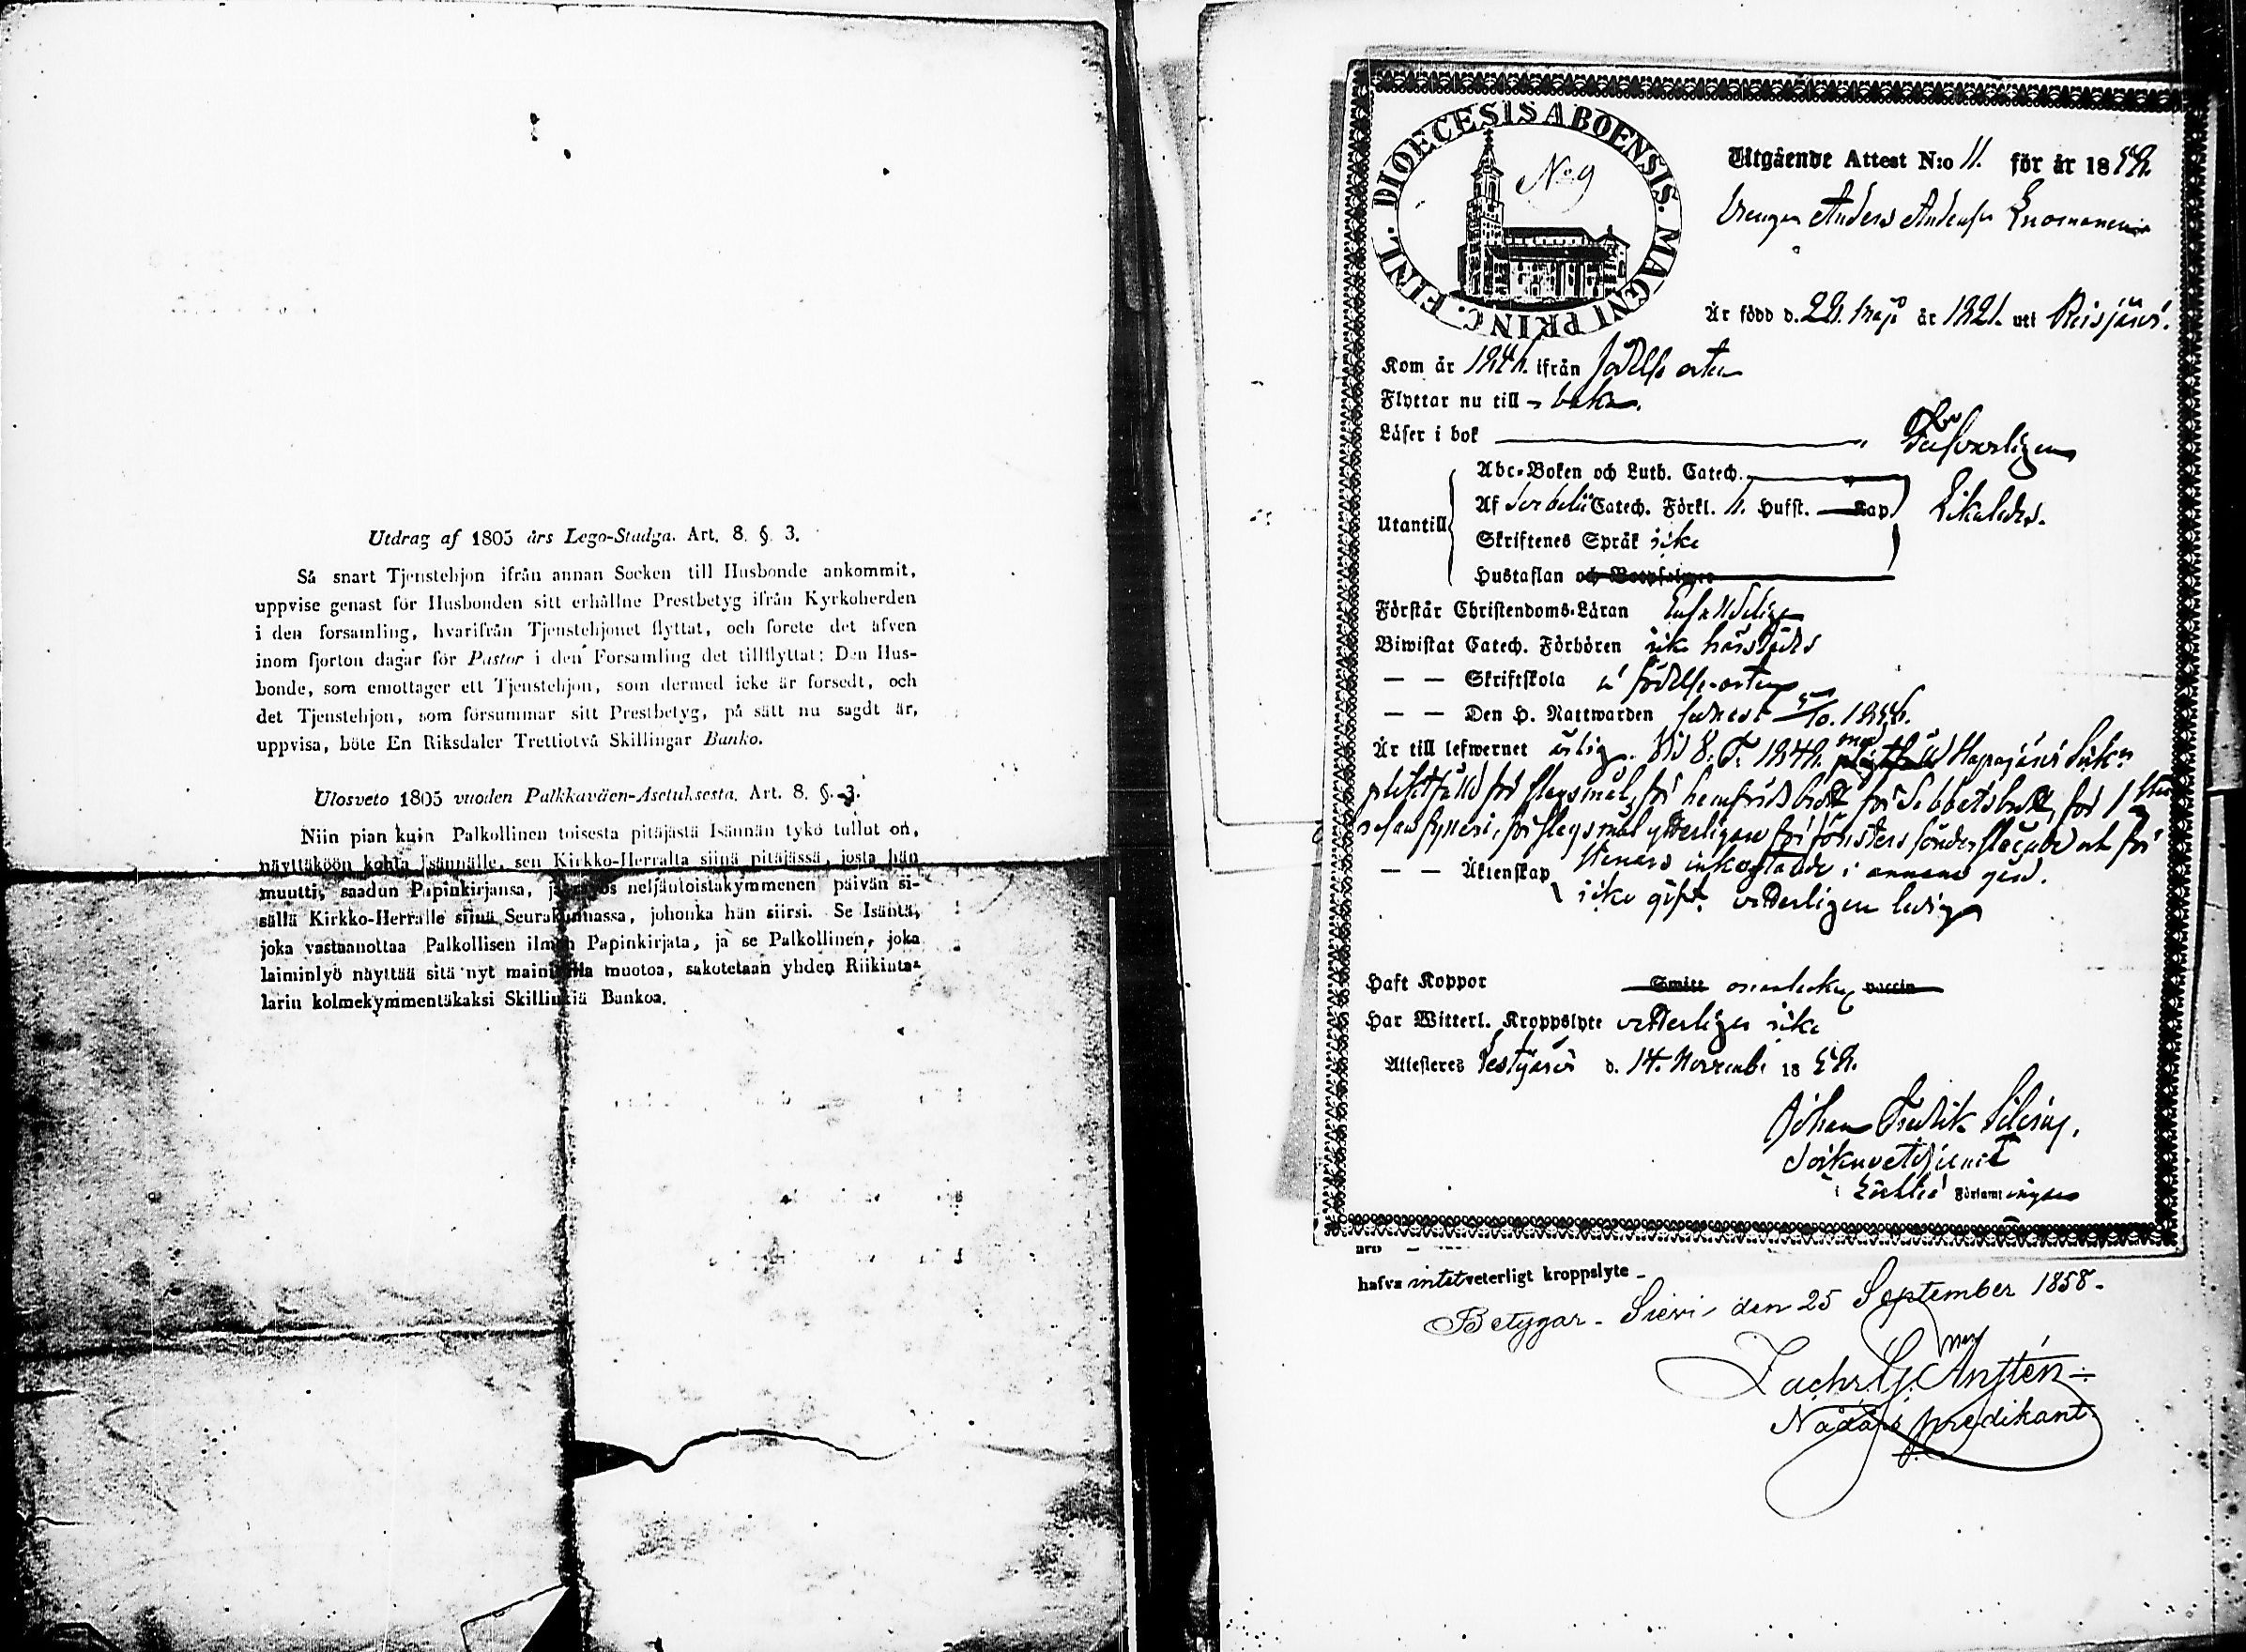 Utdrag af 1805 års Lego-Stadga. Art. 8. §. 3.
Så snart Tjenstehjon ifrån annan Socken till Husbonde ankommit,
uppvise genast för Husbonden sitt erhållne Prestbetyg ifrån Kyrkoherden
i den forsamling, hvarifrån Tjenstehjonet flyttat, och forete det äfven
inom fjorton dagar för Pastor i den Forsamling det tillflyttat: Den Hus-
bonde, som emottager ett Tjenstehjon, som dermed icke är forsedt, och
det Tjenstehjon, som försummar sitt Prestbetyg, på sätt nu sagdt är,
uppvisa, böte En Riksdaler Trettiotvå Skillingar Banko.
Ulosveto 1805 vuoden Palkkaväen-Asetuksesta. Art. 8. §. 3.
Niin pian kuin Palkollinen toisesta pitäjästä Isännän tykö tullut on,
näyttäköön kohta Isännälle, sen Kirkko-Herralta siinä pitäjässä, josta hän
muutti, saadun Papinkirjansa, ja myös neljäntoistakymmenen päivän si-
sällä Kirkko-Herralle siinä Seurakunnassa, johonka hän siirsi. Se Isäntä,
joka vastaanottaa Palkollisen ilman Papinkirjata, ja se Palkollinen, joka
laiminlyö näyttää sitä nyt mainitulla muotoa, sakotetaan yhden Riikinta-
larin kolmekymmentäkaksi Skillinkiä Bankoa.
DIOECESIS ABOENSIS. MAGNI PRINC. FINL.
No 9
Utgående Attest N:o 11. för år 18
Drengen Anders Andersson
Är född d. 22. Maji år 1821. uti Reisjärvi.
Kom år ifrån födelse orten
Flyttar nu till -baka.
Läser i bok Försvarligen
Utantill
Abc-Boken och Luth. Catech.
Af Catech. Förkl. Husst. Kap Likaledes.
Skriftenes Språk icke
Hustaflan och Bootpsalmer
Förstår Christendoms-Läran
Biwistat Catech. Förhören icke härstädes
— — Skriftskola i födelse-orten
— — Den H. Nattwarden
Är till lefwernet ärlig. Vid
pliktfälld för slagsmål, för hemfridsbrott för sabbatsbrott, för 1
för slagsmål ytterligare för fönsters sönderslående och för
stenars inkastande i annans gård.
— — Äktenskap icke gift. veterligen ledig
Haft Koppor Smitt vaccin
Har Witterl. Kroppslyte veterligen icke
Attesteres Lestijärvi d. 14. November 18
Johan Fredrik
i Församl ingen
hafva intet veterligt kroppslyte -
Betygar - Sievi - den 25 September 1858 -
Zachr. G. Anstén
Nådårs predikant